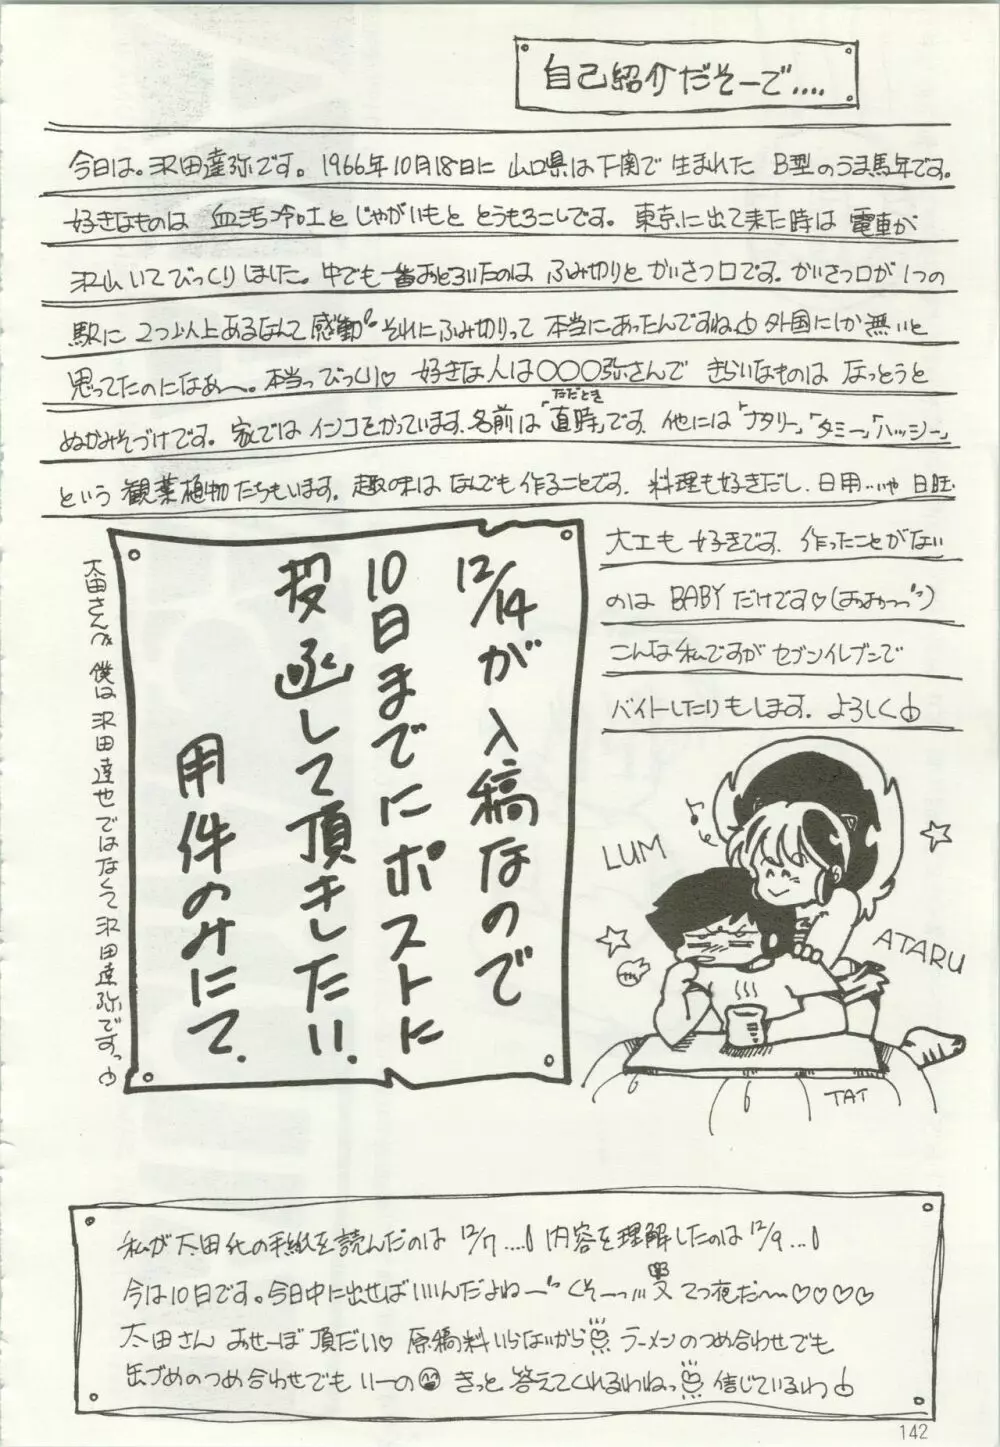 自己紹介だそーで....
今日は。沢田達弥です。1966年10月18日に 山口県は下関で 生まれた B型のうま馬年です。
好きなものは 血汚冷吐と じゃがいもと とうもろこしです。東京に出て来た時は 電車が
沢山いてびっくりしました。中でも一番おどろいたのは ふみ切りと かいさつ口です。かいさつ口が1つの
駅に 2つ以上あるなんて 感動〃 それにふみ切りって 本当にあったんですね 外国にしか無いと
思ってたのになぁ〜。本当っびっくり♡ 好きな人は〇〇〇弥さんで きらいなものは なっとうと
ぬかみそづけです。家では インコをかっています、名前は「直時」です、他には「ナタリー」「タミー」「ハッシー」
ただとき
という 観葉植物たちもいます。趣の味は なんでも 作ることです、料理も好きだし、日用…いや 日旺
大工も 好きです、作ったことがない
のは BABYだけです♡
こんな私ですが セブンイレブンで
バイトしたりもします、よろしく
12/14が入稿なので
10日までにポストに
投函して頂きしたい、
用件のみにて、
太田さんへ 僕は 沢田達也ではなくて 沢田達弥ですっ
LUM
ATARU
TAT
私が太田氏の手紙を読んだのは 12/7....! 内容を理解したのは 12/9...!
今は10日です。今日中に出せばいいんだよねー くそーっ!!! 又 てつ夜だ〜♡♡♡♡
太田さん おせーぼ 頂だい♡ 原稿料いらないから ラーメンのつめ合わせでも
缶づめのつめ合わせでも いーの きっと 答えてくれるわねっ 信じているわ
142